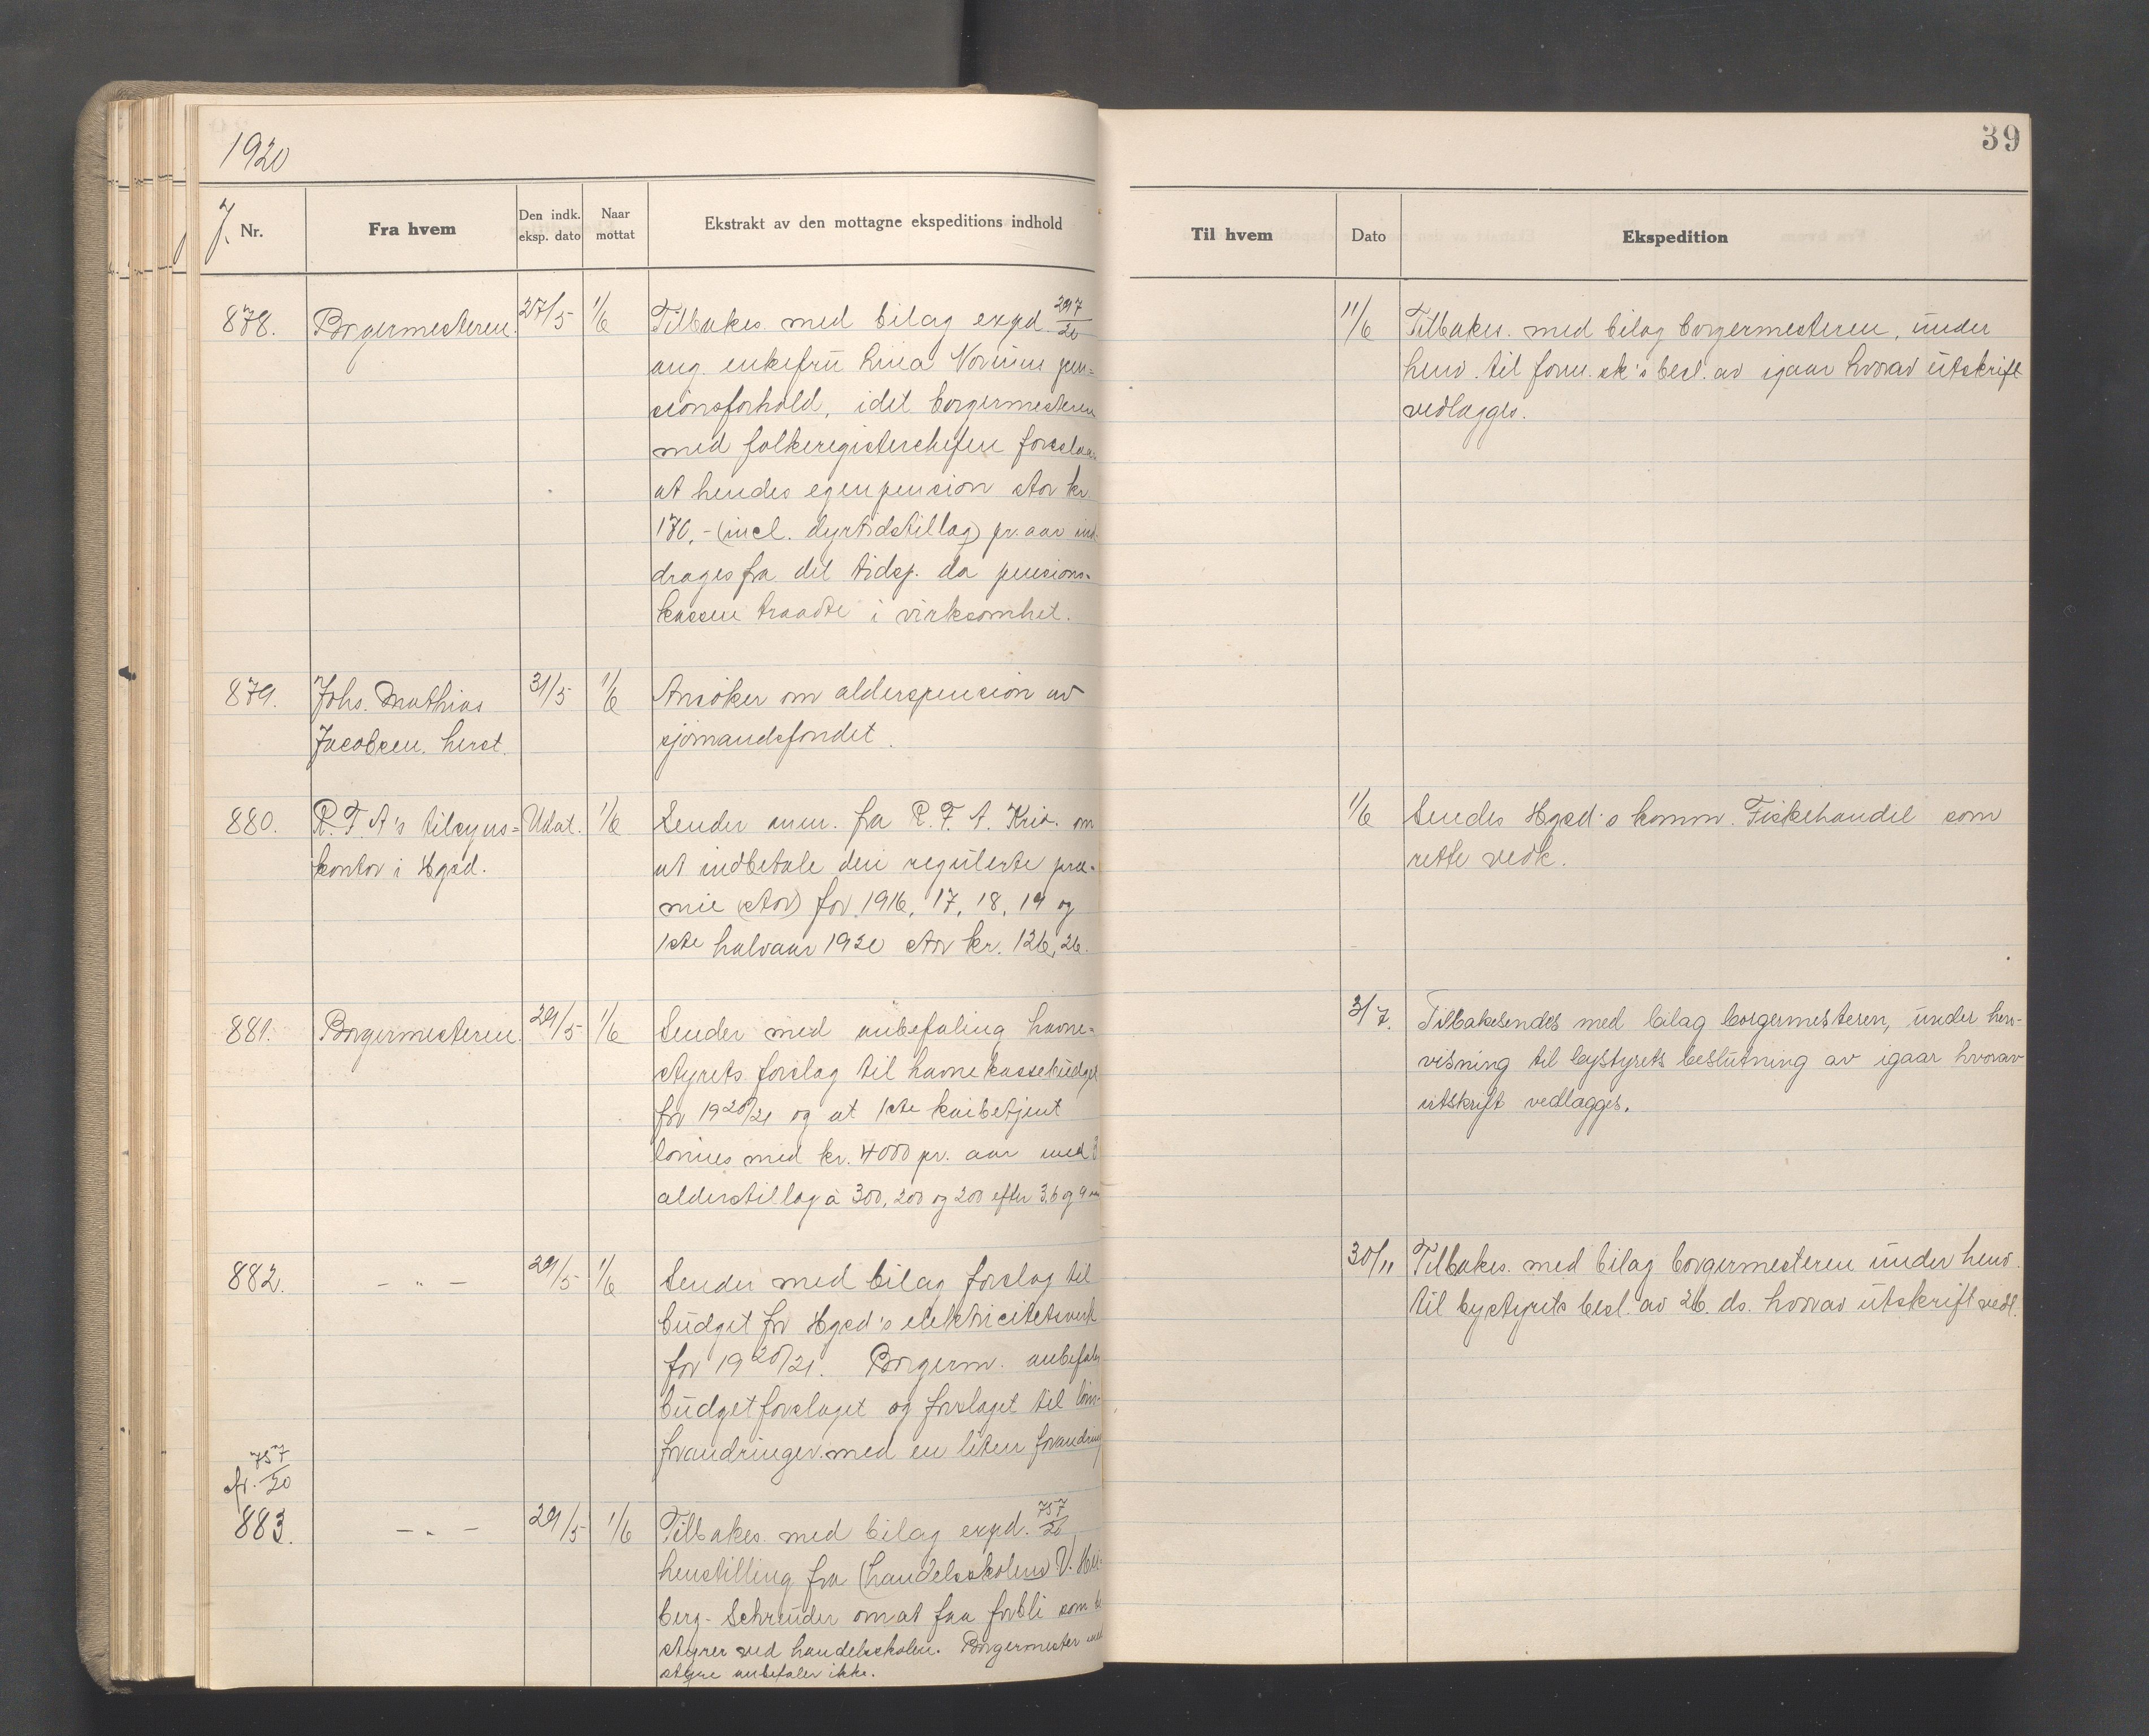 1920
39
J. Nr.
Fra hvem
Den indk. eksp. dato
Naar mottat
Ekstrakt av den mottagne ekspeditions indhold
Til hvem
Dato
Ekspedition
878. Borgermesteren 27/5 1/6 Tilbakes. med bilag expd. 297/20
ang. enkefru Lina Norums pen=
sionsforhold, idet borgermesteren
med folkeregisterchefen foreslaar
at hendes egenpension stor kr
170,- (incl. dyrtidstillæg) pr. aar ind-
drages fra det tidsp. da pensions-
kassen traadte i virksomhet.
11/6 Tilbakes. med bilag borgermesteren, under
henv. til form.sk's besl. av igaar hvorav utskrift
vedlægges.
879. Johs. Mathias 31/5 1/6 Ansöker om alderspension av
Jacobsen. herst. sjömandsfondet.
880. R.T.A's tilsyns= Udat. 1/6 Sender anm. fra R.F.A. Kria. om
kontor i Hgsd. at indbetale den regulerte præ-
mie (stor) for 1916, 17, 18, 19 og
1ste halvaar 1920 stor kr. 126,26.
1/6 Sendes Hgsd's komm. Fiskehandel som
rette vedk.
881. Borgermesteren 29/5 1/6 Sender med anbefaling havne-
styrets forslag til havnekassebudget
for 1920/21 og at 1ste kaibetjent
lönnes med kr. 4000 pr. aar med 3
alderstillæg à 300, 200 og 200 efter 3, 6 og 9 aar
3/7. Tilbakesendes med bilag borgermesteren, under hen-
visning til bystyrets beslutning av igaar hvorav
utskrift vedlægges.
882. - " - 29/5 1/6 Sender med bilag forslag til
budget for Hgsd's elektricitetsverk
for 1920/21. Borgerm. anbefaler
budgetforslaget og forslaget til löns-
forandringer med en liten forandring
30/11 Tilbakes. med bilag borgermesteren under henv.
til bystyrets besl. av 26. ds. hvorav utskrift vedl.
cfr. 757/20
883. - " - 29/5 1/6 Tilbakes. med bilag expd. 757/20
henstilling fra (handelsskolen) V. Hei-
berg-Schreuder om at faa forbli som be
styrer ved handelsskolen. Borgermester med
styre anbefaler ikke.